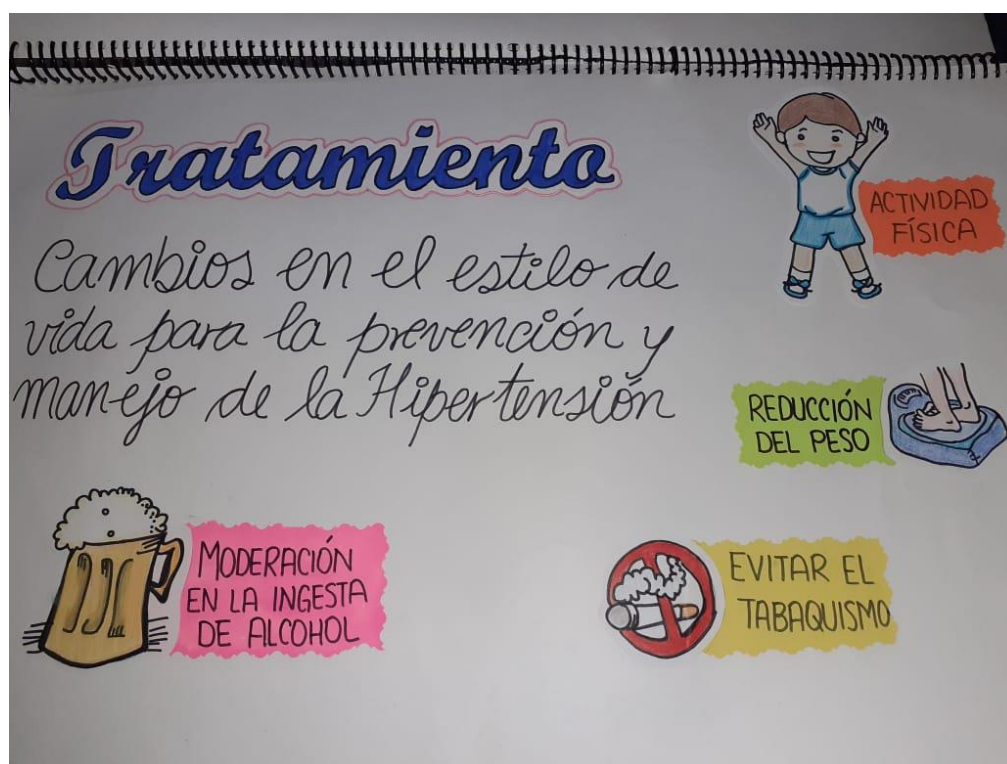 Tratamiento
Cambios en el estilo de
vida para la prevención y
manejo de la Hipertensión
ACTIVIDAD
FÍSICA
REDUCCIÓN
DEL PESO
MODERACIÓN
EN LA INGESTA
DE ALCOHOL
EVITAR EL
TABAQUISMO